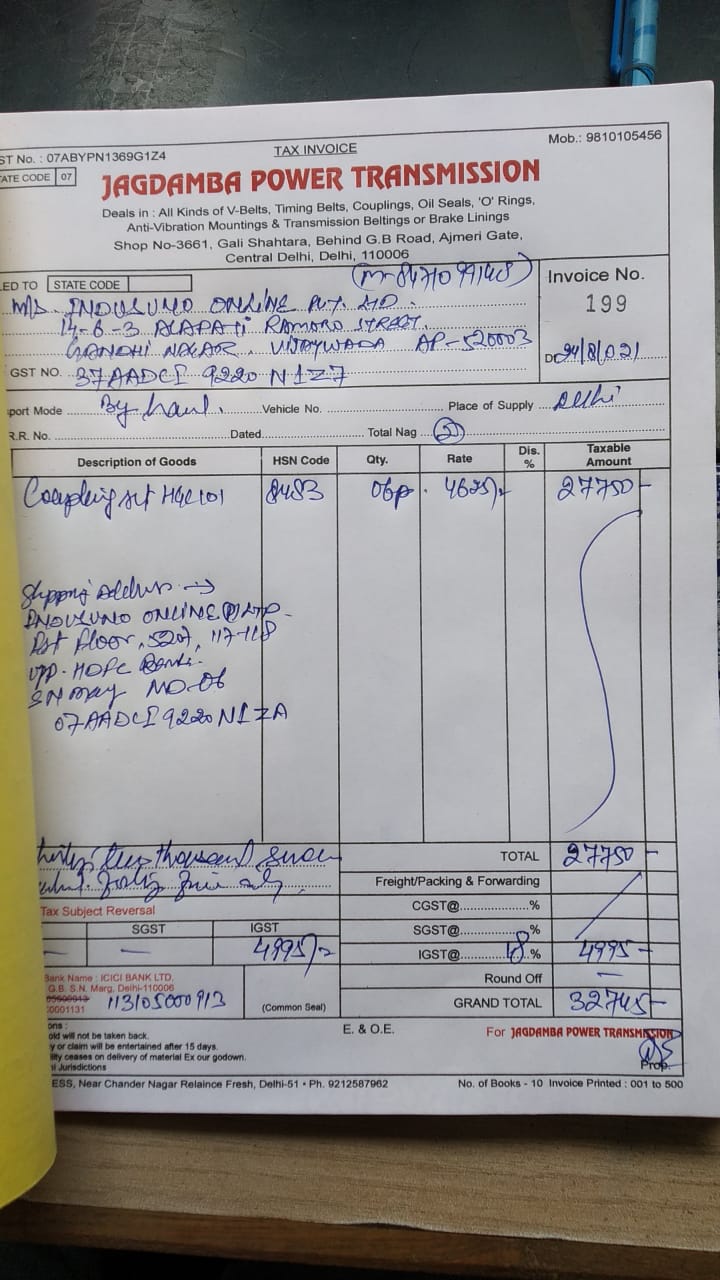 ST No. : 07ABYPN1369G1Z4
TAX INVOICE
Mob.: 9810105456
ATE CODE 07
JAGDAMBA POWER TRANSMISSION
Deals in : All Kinds of V-Belts, Timing Belts, Couplings, Oil Seals, 'O' Rings,
Anti-Vibration Mountings & Transmission Beltings or Brake Linings
Shop No-3661, Gali Shahtara, Behind G.B Road, Ajmeri Gate,
Central Delhi, Delhi, 110006
LED TO STATE CODE
Invoice No.
199
M/s. INDUSUNO ONLINE PVT. LTD.
14-6-3 ALAPATI RAMARO STREET.
GANDHI NAGAR. VIJAYWADA AP-520003
24/8/021
GST NO. 37AADCI 9220 N1Z7
port Mode By hand. Vehicle No. Place of Supply Delhi
R.R. No. Dated Total Nag
Description of Goods HSN Code Qty. Rate Dis. % Taxable Amount
Coupling set HQC101 8483 06p. 4625/- 27750-
Shipping Address →
INDUSUNO ONLINE
Ist floor, 5207, 117-118
opp. HDFC Bank.
SN 06
07AADCI9220N1ZA
thirty two thousand seven
forty five only
TOTAL 27750-
Freight/Packing & Forwarding
Tax Subject Reversal
CGST@ %
SGST IGST
SGST@ %
— — 4995/-
IGST@ 18 % 4995-
Bank Name : ICICI BANK LTD.
G.B. S.N. Marg, Delhi-110006
113105000913
0001131
(Common Seal)
Round Off —
GRAND TOTAL 32745-
ons :
old will not be taken back.
y or claim will be entertained after 15 days.
lity ceases on delivery of material Ex our godown.
l Jurisdictions
E. & O.E.
For JAGDAMBA POWER TRANSMISSION
Prop.
ESS, Near Chander Nagar Relaince Fresh, Delhi-51 • Ph. 9212587962
No. of Books - 10 Invoice Printed : 001 to 500